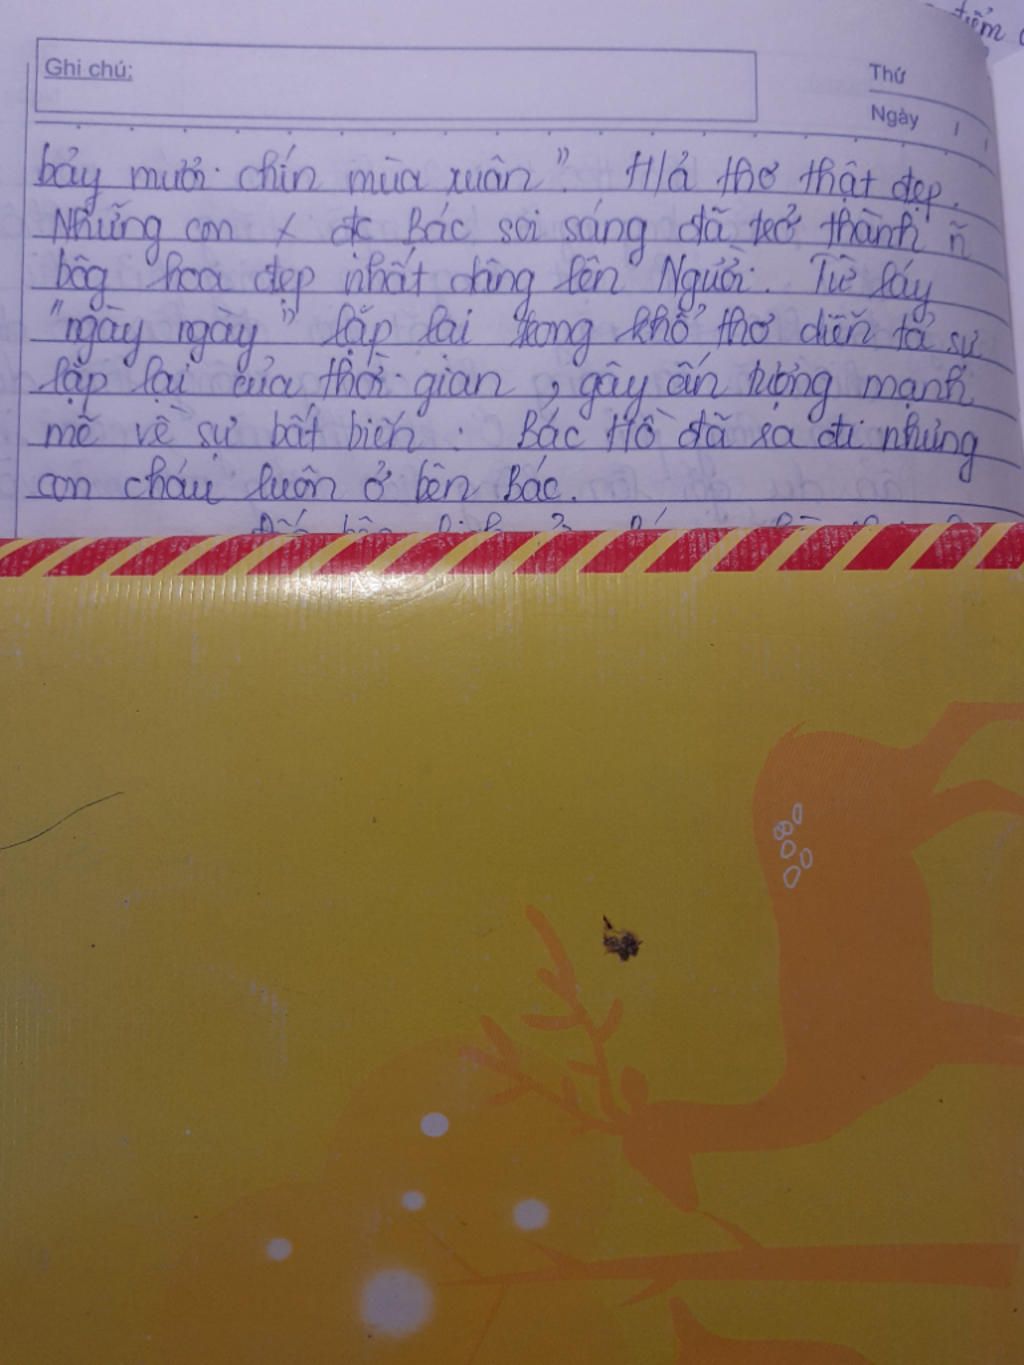 điểm
Ghi chú:
Thứ
Ngày
bảy mươi chín mùa xuân". H/ả thơ thật đẹp.
Những con x đc Bác soi sáng đã trở thành ñ
bôg hoa đẹp nhất dâng lên Người. Từ láy
"ngày ngày" lặp lại trong khổ thơ diễn tả sự
lặp lại của thời gian, gây ấn tượng mạnh
mẽ về sự bất biến: Bác Hồ đã xa đi nhưng
con cháu luôn ở bên Bác.